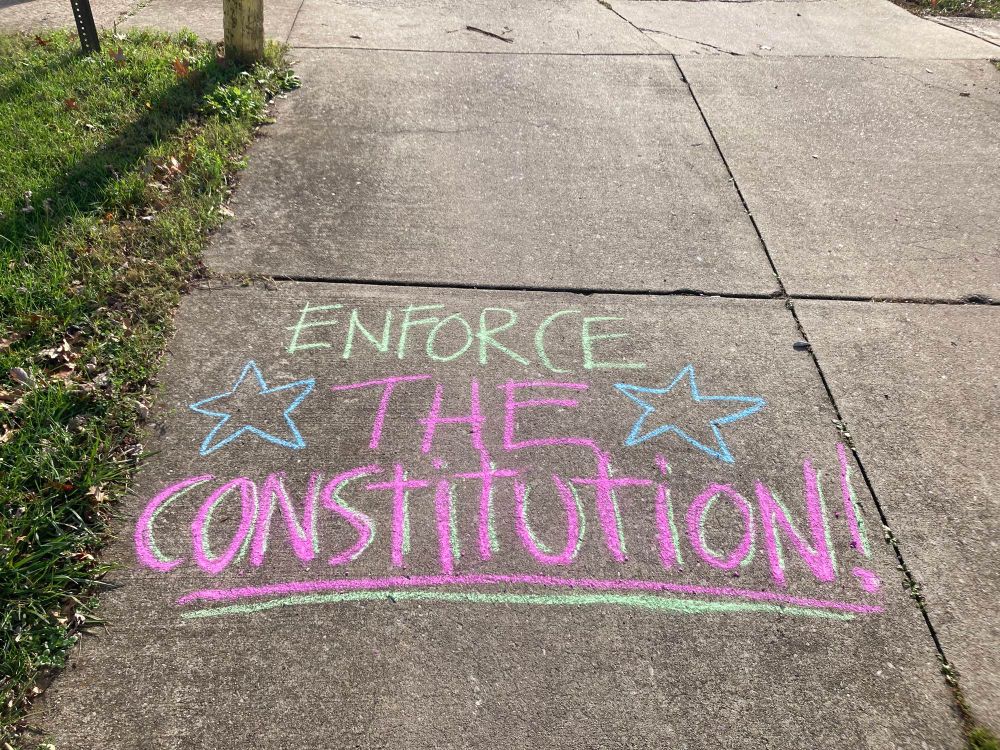 ENFORCE
THE
CONSTITUTION!